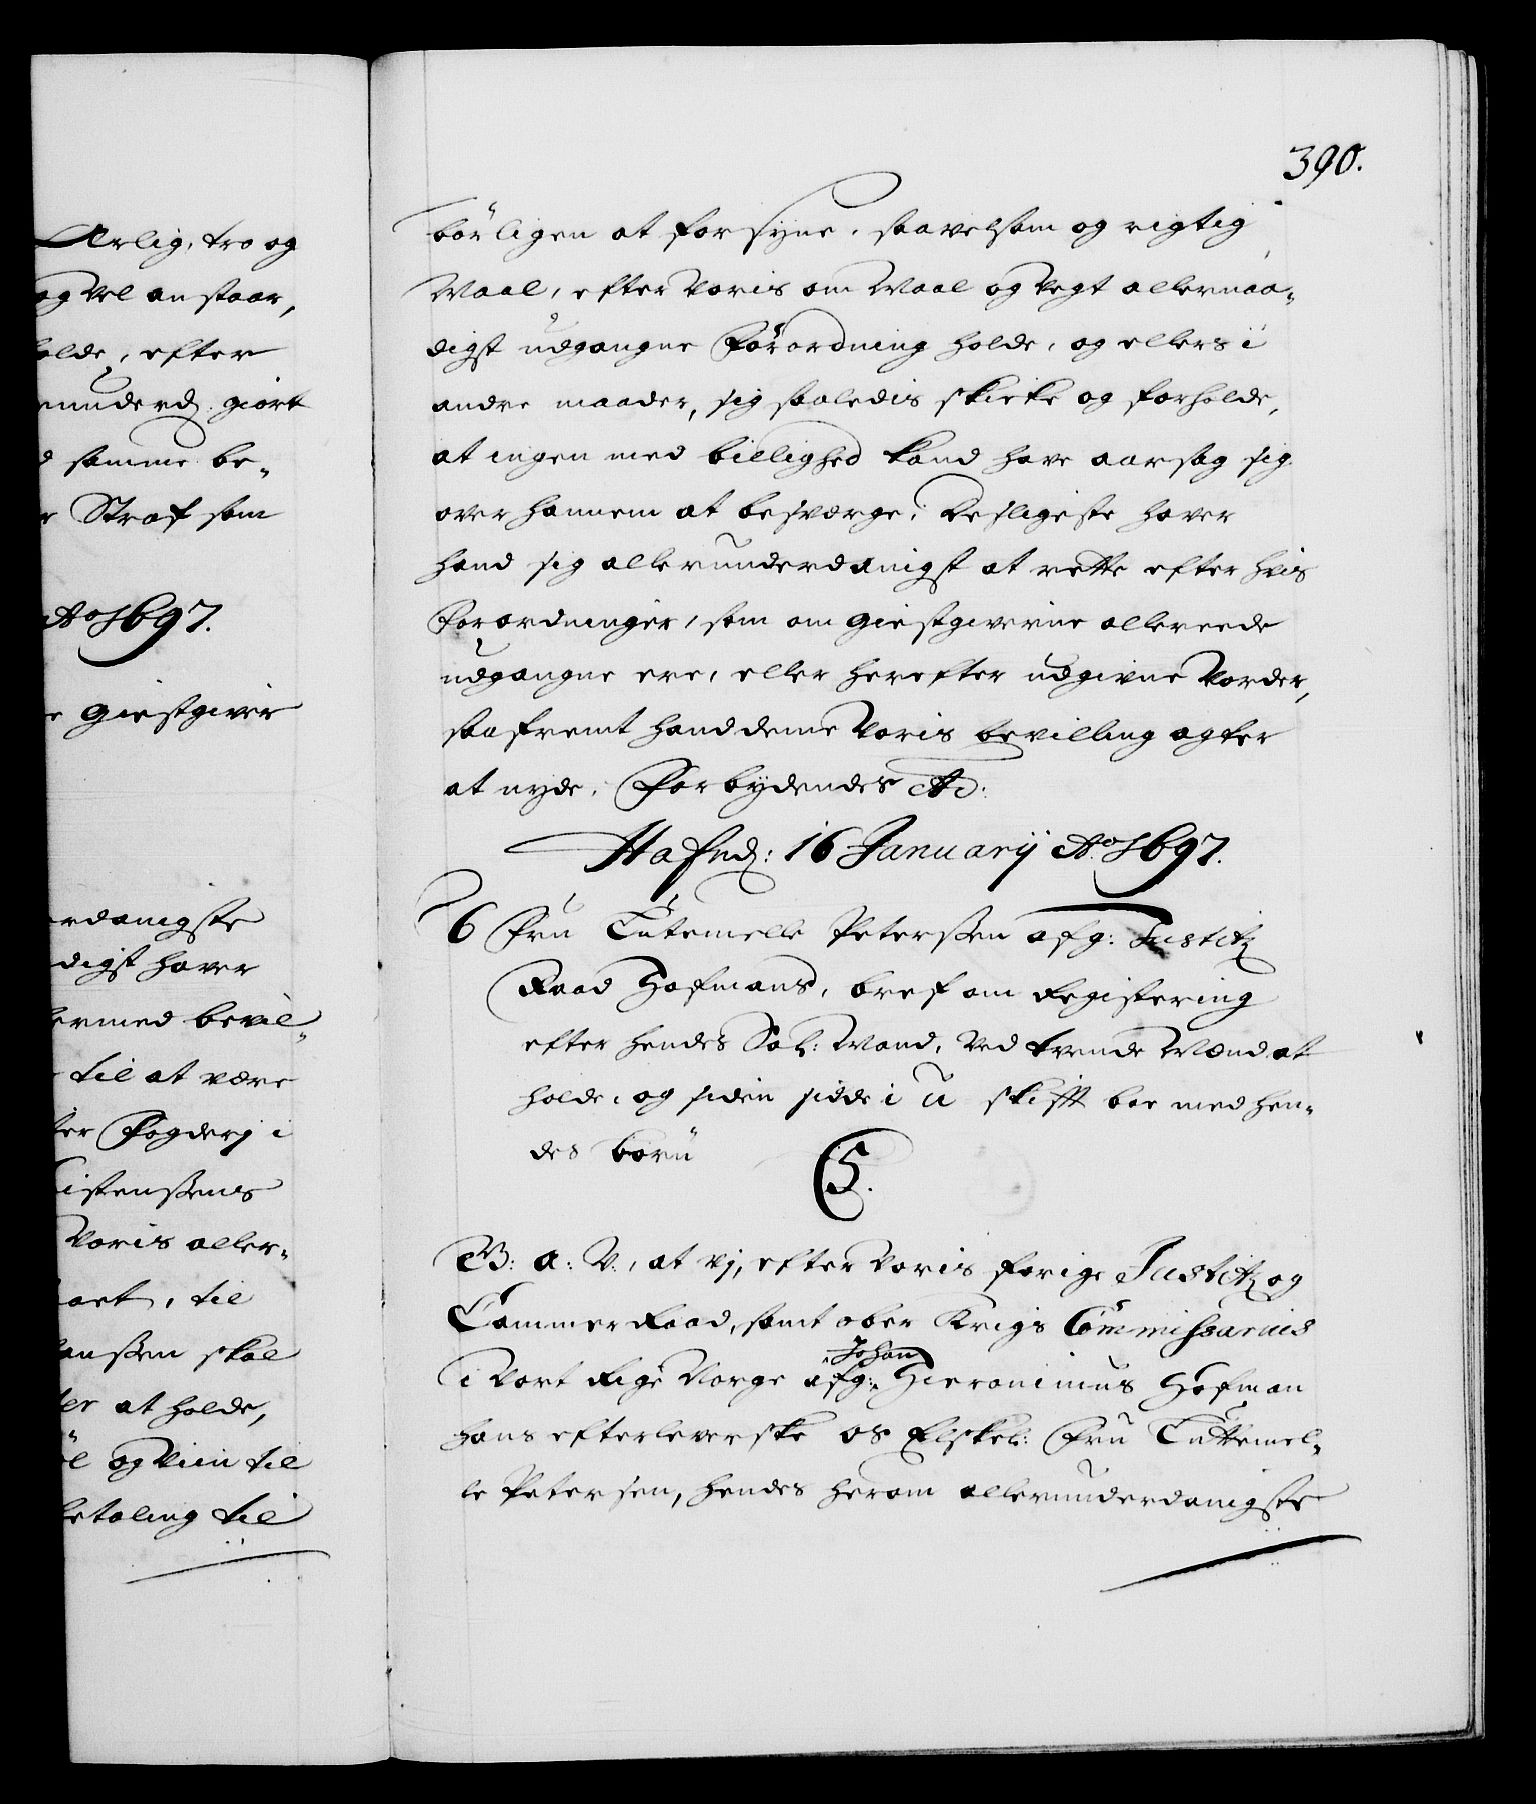 Ærlig, tro og
og vel anstaar,
holde, efter
erunderd. giort
d samme be-
r Straf som
Ao 1697.
e giestgiver
erdanigste
digst haver
ermed bevil-
til at være
ter Fogderj i
istenssens
Voris aller-
aet, til
anssen skal
ler at holde,
øl og Viin til
betaling til
390.
börligen at forsyne, saavelsom og rigtig
Maal, efter Voris om Maal og Vegt allernaa-
digst udgangne Forordning holde, og ellers i
andre maader, sig saaledis skicke og forholde,
at ingen med billighed kand have aarsag sig
over hannem at besværge; Desligeste haver
hand sig allerunderdanigst at rette efter hvis
Forordninger, som om giestgiverne allereede
udgangne ere, eller herefter udgivne Vorder,
saafremt hand denne Voris bevilling agter
at nyde. Forbydendes etc:
Hafnd: 16 Januarij Ao 1697.
6 Fru Tutemelle Peterssen afg: Justitz
Raad Hofmans, bref om Registering
efter hendes Sal: Mand, Ved tvende Mænd at
holde, og siden sidde i u-skifft boe med hen-
des börn
C5.
G: a: V:, at vj, efter Voris forige Justitz og
Cammer Raad, samt ober Krigs Commissarius
i Vort Rige Norge afg: Johan Hieronimus Hofman
hans efterleverske os Elskel: Fru Tuttemel-
le Petersen, hendes herom allerunderdanigste